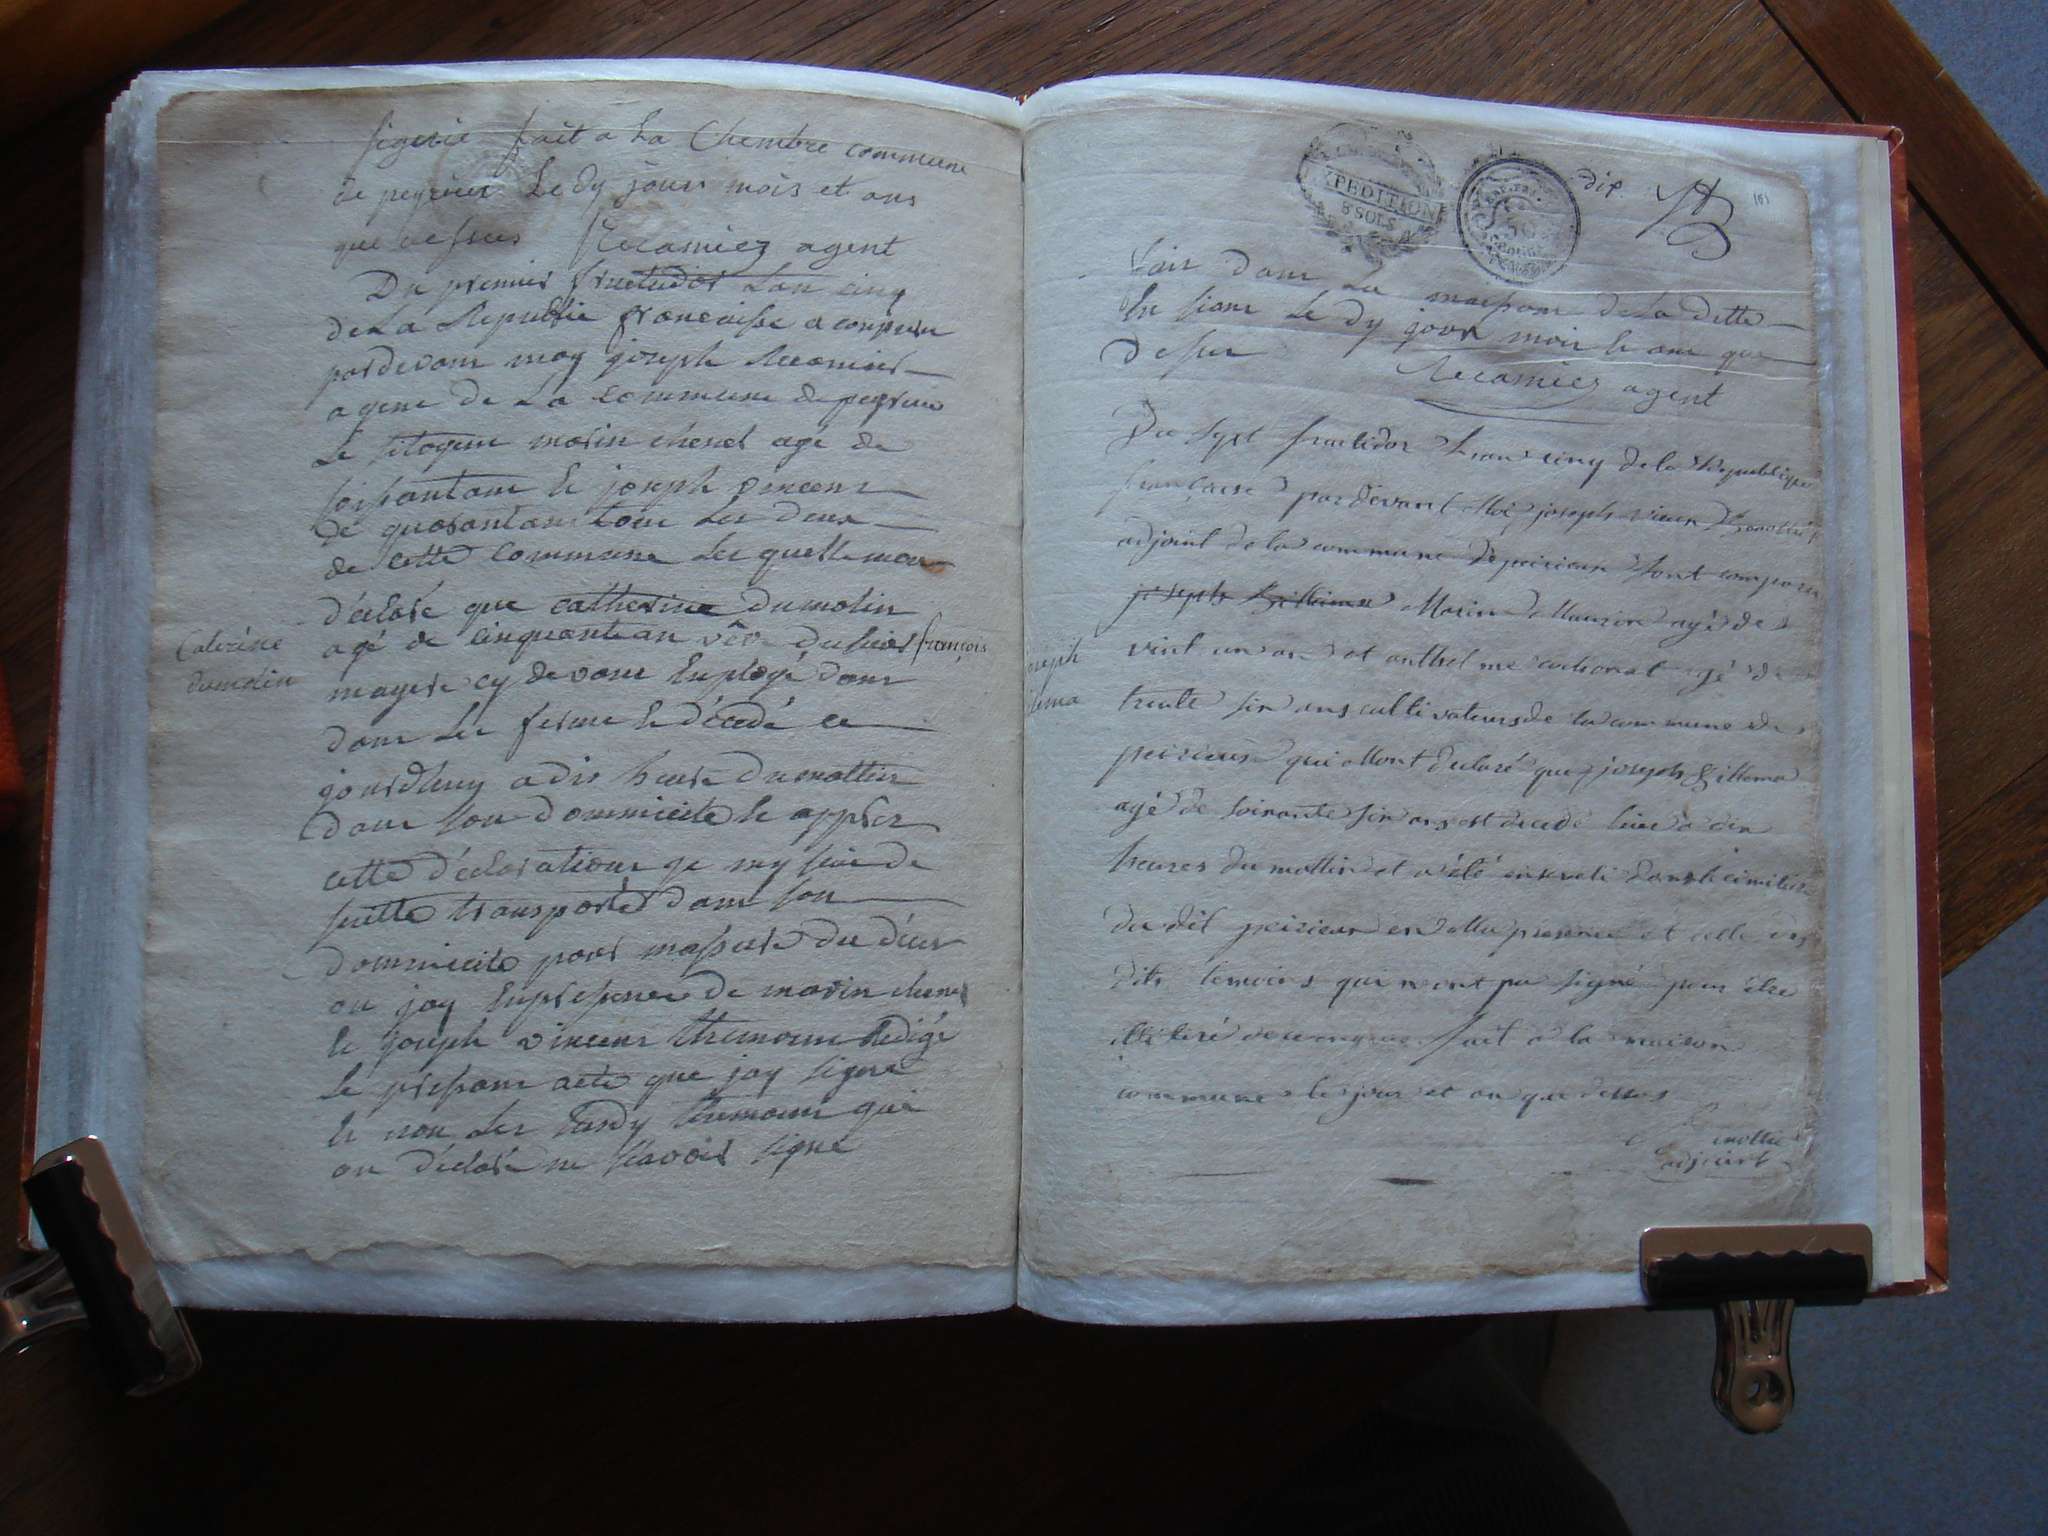 fait a La Chembre commune
de peyrieu Le dy jour mois et ans
que dessus Recamiez agent
Du premier fructudor Lan cinq
de La Republie francaisse a conparu
pardevant moy joseph Recamier
agent de La commune de peyrieu
Le sitoyen morin chenet agé de
soissantans Et joseph vincent
de quarantans tous Les deux
de cette commune Les quelle mon
déclaré que catherine dumolin
agé de cinquantan vêve du sieur françois
Caterine
dumolin
cy devant Employé dans
dans Les ferme Et décedé ce
jourdhuy a dix heure du mattin
dans son dommicile Et apprer
cette déclaration je my suis de
suitte transporté dans son
dommicile pour massuré du décer
ou jay Enpresence de morin chenet
Et joseph vincent themoins Redigé
Le pressant acte que jay signé
Et non Les surdy themoins qui
on déclaré ne scavoir signé
EXPEDITION
8 SOLS
dix
fait dans La maisson de La ditte
Le dy jour mois Et ans que
desur
Recamiez agent
Du sept fructidor L'an cinq de la Republique
française pardevant Moi joseph
adjoint de la commune de peirieu sont comparu
joseph Morin agé de
vint un an et anthelme agé de
trente six ans cultivateurs de la commune de
peirieux qui Mont déclaré que joseph Gillema
joseph
lema
agé de soixante six ans est décédé hier a dix
heures du mattin et a été enseveli dans le cimitiere
du dit peirieu en Ma presence et celle des
dits temoins qui n'ont pas signé pour être
illiteré de ce enquis fait à la maison
commune le jour et an que dessus
adjoint